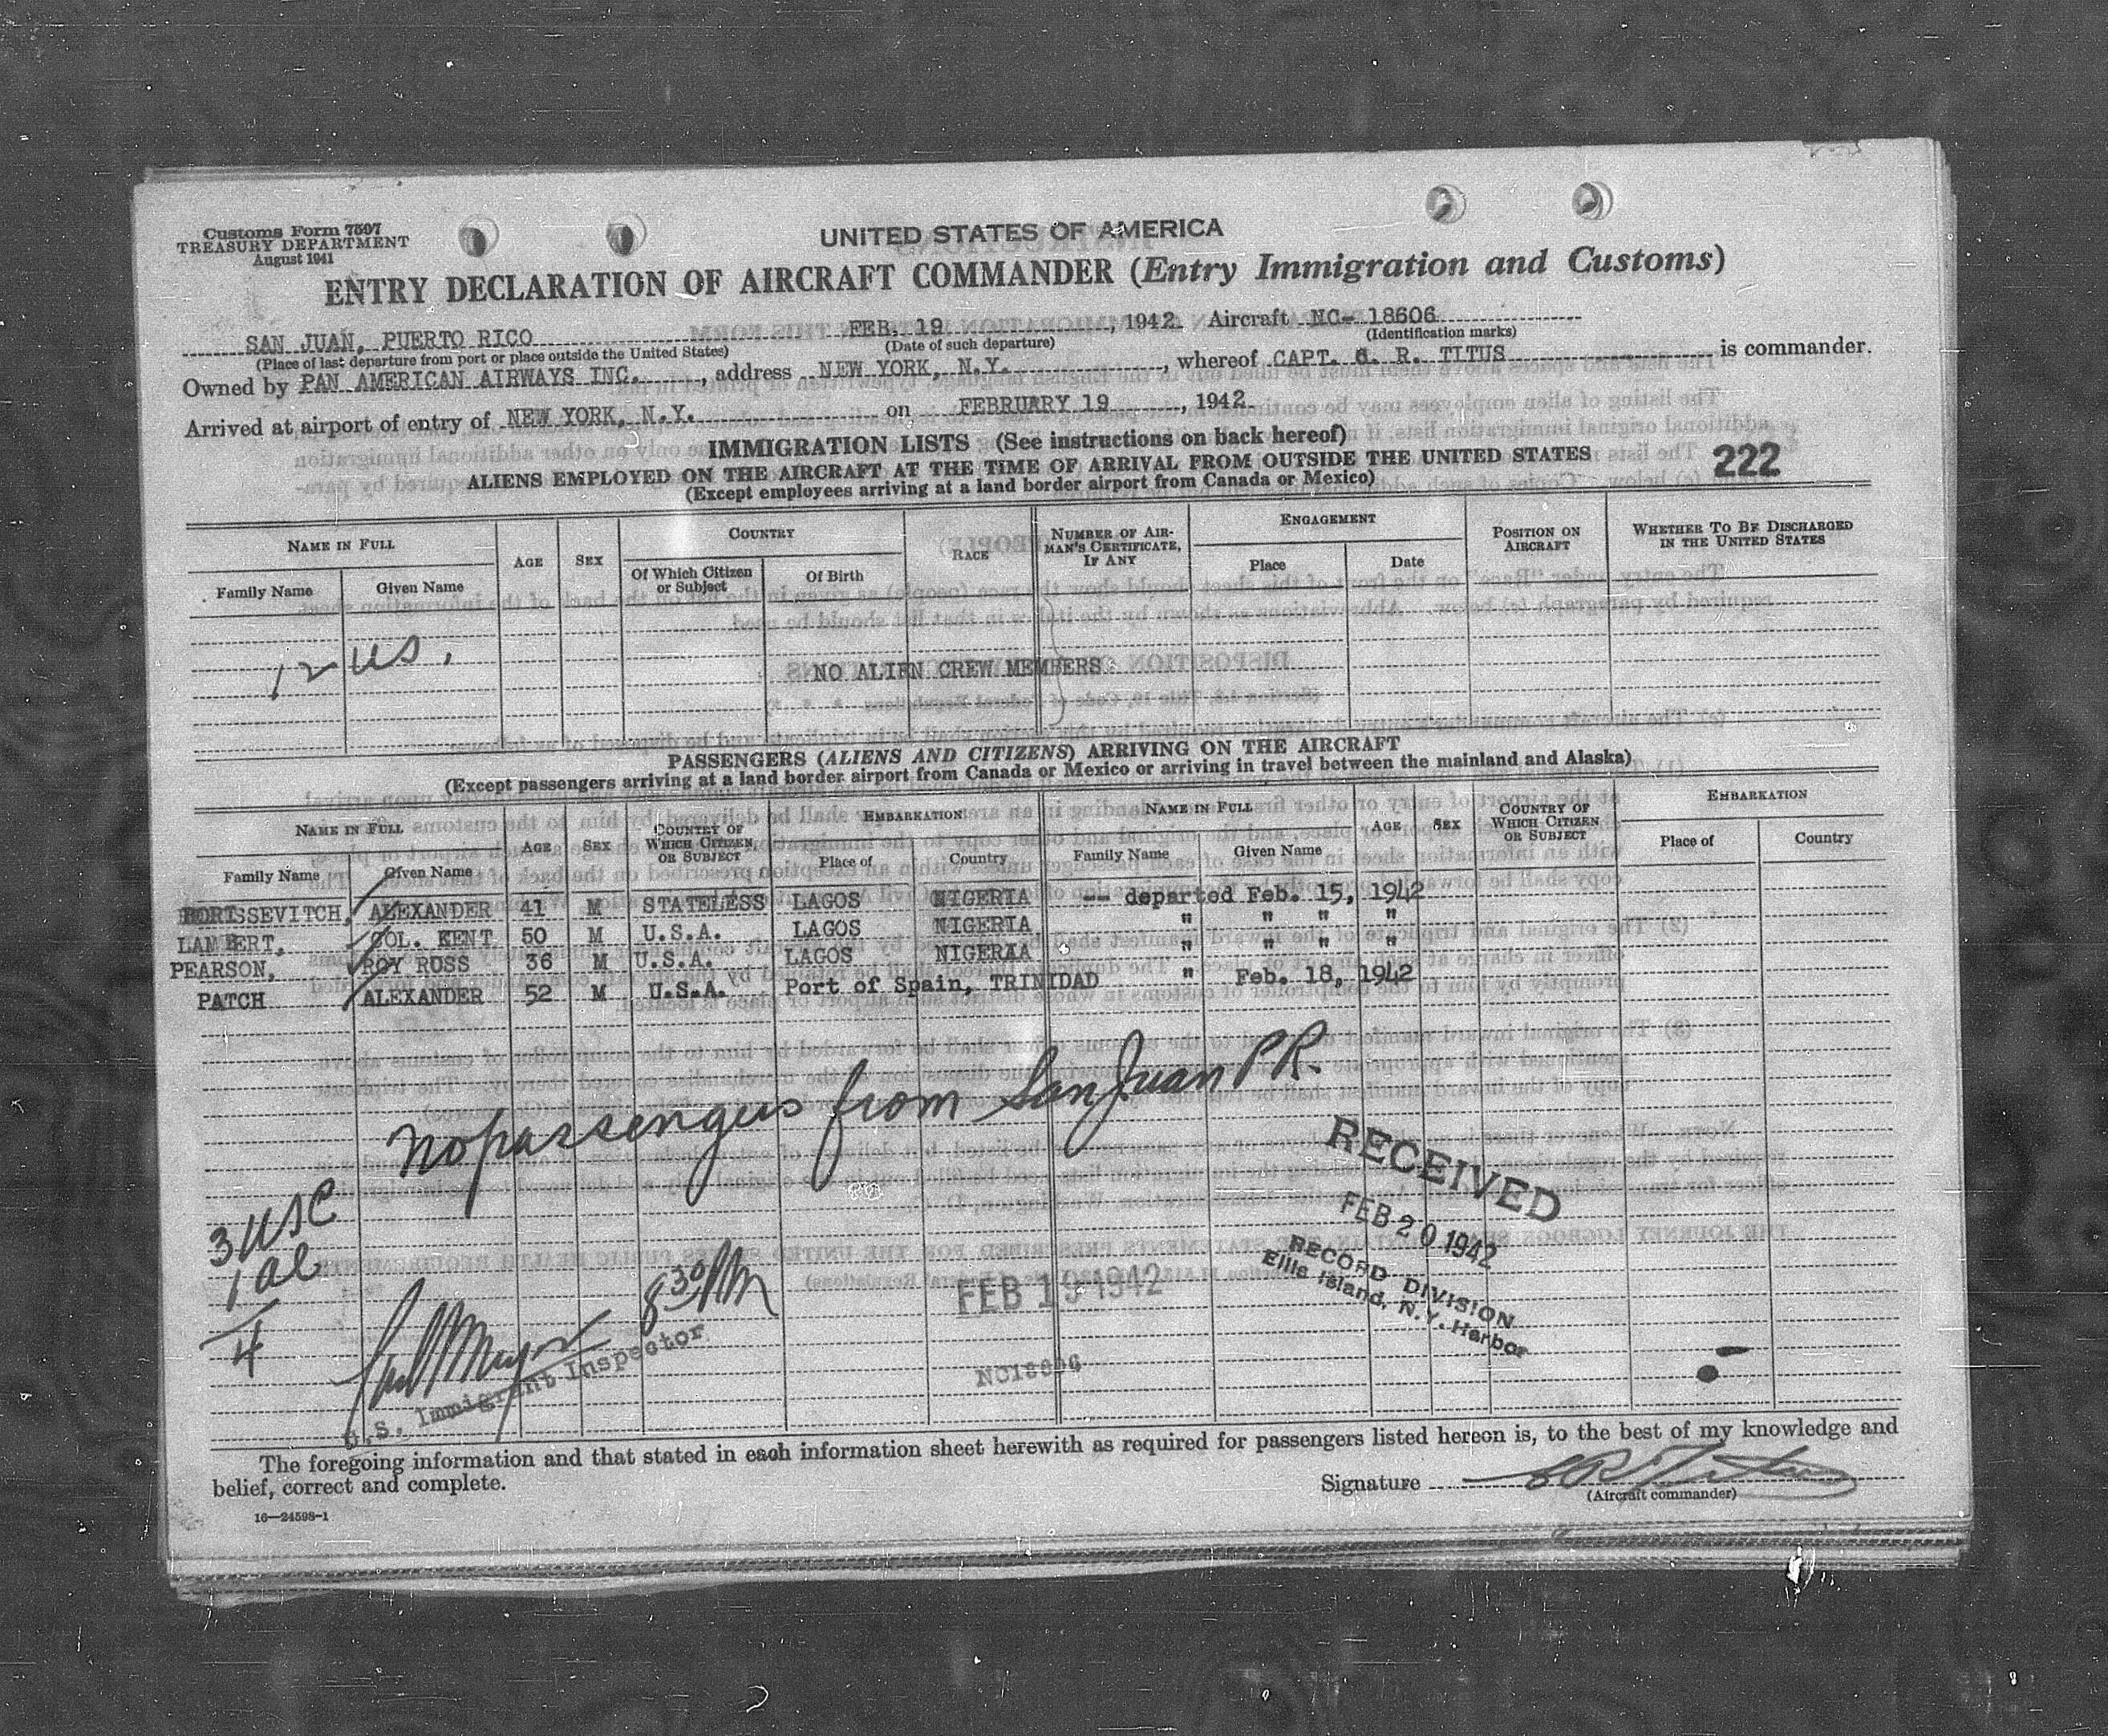 Customs Form 7507
TREASURY DEPARTMENT
August 1941
UNITED STATES OF AMERICA
ENTRY DECLARATION OF AIRCRAFT COMMANDER (Entry Immigration and Customs)
SAN JUAN, PUERTO RICO FEB. 19, 1942 Aircraft NC- 18606
(Place of last departure from port or place outside the United States) (Date of such departure) (Identification marks)
Owned by PAN AMERICAN AIRWAYS INC., address NEW YORK, N.Y., whereof CAPT. R. TITUS is commander.
Arrived at airport of entry of NEW YORK, N.Y. on FEBRUARY 19, 1942
IMMIGRATION LISTS (See instructions on back hereof)
ALIENS EMPLOYED ON THE AIRCRAFT AT THE TIME OF ARRIVAL FROM OUTSIDE THE UNITED STATES 222
(Except employees arriving at a land border airport from Canada or Mexico)
NAME IN FULL AGE SEX COUNTRY RACE NUMBER OF AIRMAN'S CERTIFICATE, IF ANY ENGAGEMENT POSITION ON AIRCRAFT WHETHER TO BE DISCHARGED IN THE UNITED STATES
Family Name Given Name Of Which Citizen or Subject Of Birth Place Date
12 US.
NO ALIEN CREW MEMBERS
PASSENGERS (ALIENS AND CITIZENS) ARRIVING ON THE AIRCRAFT
(Except passengers arriving at a land border airport from Canada or Mexico or arriving in travel between the mainland and Alaska)
NAME IN FULL AGE SEX COUNTRY OF WHICH CITIZEN OR SUBJECT EMBARKATION NAME IN FULL AGE SEX COUNTRY OF WHICH CITIZEN OR SUBJECT EMBARKATION
Family Name Given Name Place of Country Family Name Given Name Place of Country
BORISSEVITCH, ALEXANDER 41 M STATELESS LAGOS NIGERIA -- departed Feb. 15, 1942
LAMBERT, COL. KENT 50 M U.S.A. LAGOS NIGERIA " " " "
PEARSON, ROY ROSS 36 M U.S.A. LAGOS NIGERAA " " " "
PATCH ALEXANDER 52 M U.S.A. Port of Spain, TRINIDAD " Feb. 18, 1942
No passengers from San Juan P.R.
RECEIVED
FEB 20 1942
RECORD DIVISION
Ellis Island, N.Y. Harbor
3 USC
1 al
4
8 30 PM
FEB 19 1942
U.S. Immigrant Inspector
NC18606
The foregoing information and that stated in each information sheet herewith as required for passengers listed hereon is, to the best of my knowledge and
belief, correct and complete.
Signature
(Aircraft commander)
16—24598-1